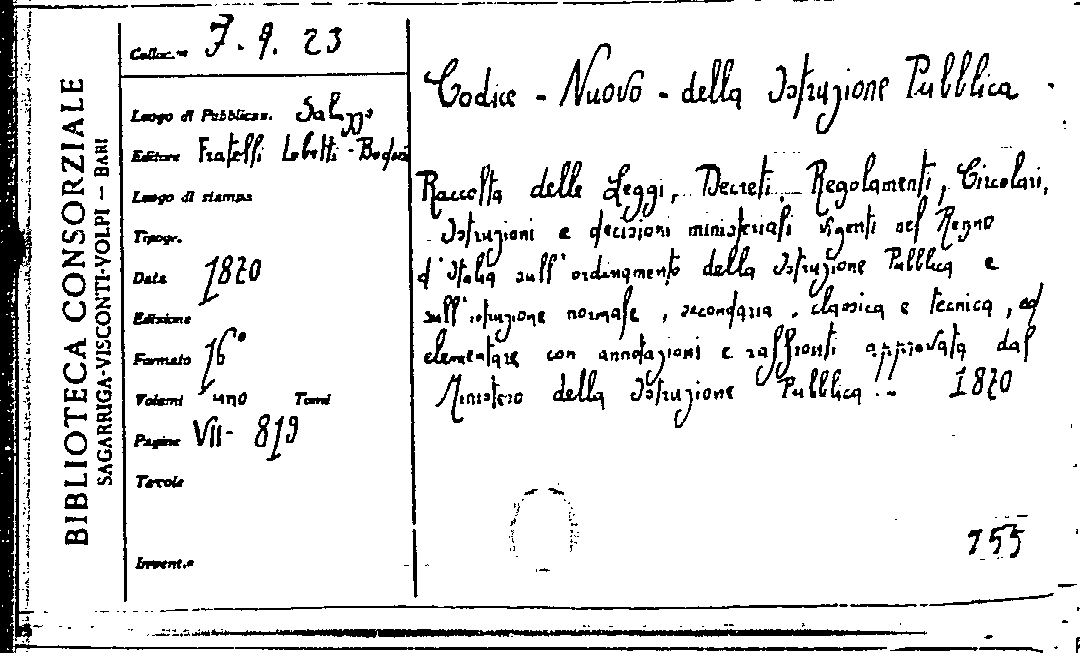 BIBLIOTECA CONSORZIALE
SAGARRIGA-VISCONTI-VOLPI — BARI
Colloc.ne 7. 9. 23
Luogo di Pubblicaz. Saluzzo
Editore Fratelli Lobetti-Bodoni
Luogo di stampa
Tipogr.
Data 1870
Edizione
Formato 16°
Volumi uno Tomi
Pagine VII- 819
Tavole
Invent.o
Codice - Nuovo - della Istruzione Pubblica.
Raccolta delle Leggi, Decreti, Regolamenti, Circolari,
Istruzioni e decisioni ministeriali vigenti nel Regno
d'Italia sull'ordinamento della Istruzione Pubblica e
sull'istruzione normale, secondaria, classica e tecnica, ed
elementare con annotazioni e raffronti approvata dal
Ministero della Istruzione Pubblica... 1870
755